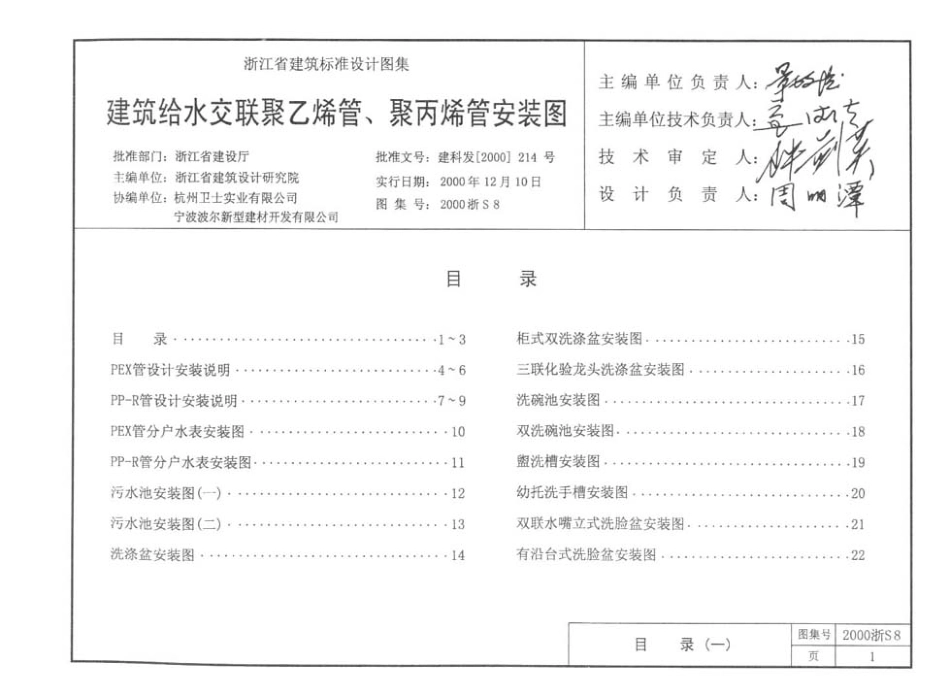 浙江省建筑标准设计图集
建筑给水交联聚乙烯管、聚丙烯管安装图
批准部门：浙江省建设厅
主编单位：浙江省建筑设计研究院
协编单位：杭州卫士实业有限公司
宁波波尔新型建材开发有限公司
批准文号：建科发[2000] 214 号
实行日期：2000年12月10日
图 集 号：2000浙S8
主编单位负责人：
主编单位技术负责人：
技术审定人：
设计负责人：周明潭
目 录
目 录 1~3
PEX管设计安装说明 4~6
PP-R管设计安装说明 7~9
PEX管分户水表安装图 10
PP-R管分户水表安装图 11
污水池安装图(一) 12
污水池安装图(二) 13
洗涤盆安装图 14
柜式双洗涤盆安装图 15
三联化验龙头洗涤盆安装图 16
洗碗池安装图 17
双洗碗池安装图 18
盥洗槽安装图 19
幼托洗手槽安装图 20
双联水嘴立式洗脸盆安装图 21
有沿台式洗脸盆安装图 22
目 录（一）
图集号 2000浙S8
页 1